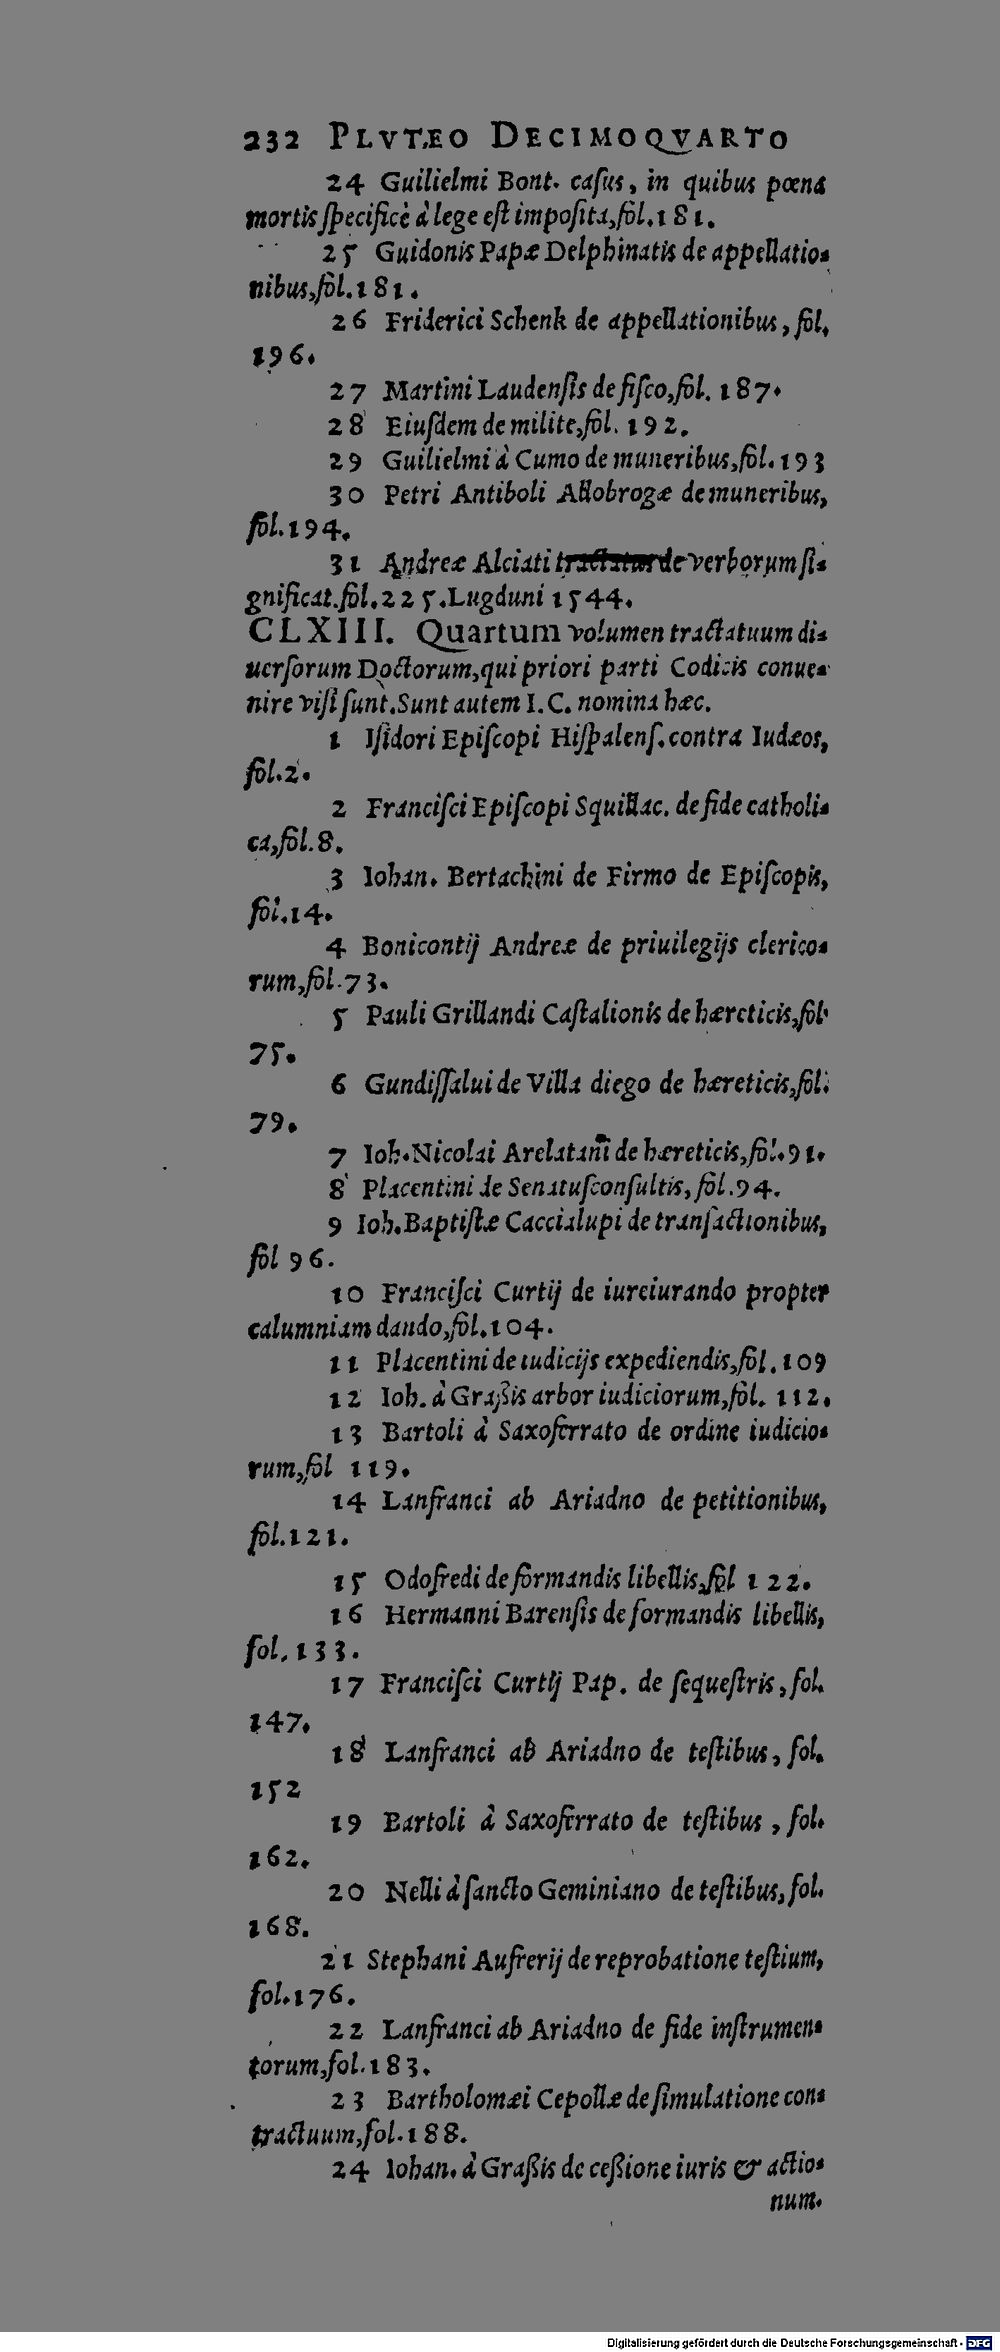 232 PLVTEO DECIMOQVARTO
24 Guilielmi Bont. caſus, in quibus pœna
mortis ſpecificè à lege eſt impoſita, fol. 181.
25 Guidonis Papæ Delphinatis de appellatio-
nibus, fol. 181.
26 Friderici Schenk de appellationibus, fol.
196.
27 Martini Laudenſis de fiſco, fol. 187.
28 Eiuſdem de milite, fol. 192.
29 Guilielmi à Cumo de muneribus, fol. 193
30 Petri Antiboli Allobrogæ de muneribus,
fol. 194.
31 Andreæ Alciati tractatus de verborum ſi-
gnificat. fol. 225. Lugduni 1544.
CLXIII. Quartum volumen tractatuum di-
uerſorum Doctorum, qui priori parti Codicis conue-
nire viſi ſunt. Sunt autem I. C. nomina hæc.
1 Iſidori Epiſcopi Hiſpalenſ. contra Iudæos,
fol. 2.
2 Franciſci Epiſcopi Squillac. de fide catholi-
ca, fol. 8.
3 Iohan. Bertachini de Firmo de Epiſcopis,
fol. 14.
4 Bonicontij Andreæ de priuilegijs clerico-
rum, fol. 73.
5 Pauli Grillandi Caſtalionis de hæreticis, fol.
75.
6 Gundiſſalui de Villa diego de hæreticis, fol.
79.
7 Ioh. Nicolai Arelatani de hæreticis, fol. 91.
8 Placentini de Senatuſconſultis, fol. 94.
9 Ioh. Baptiſtæ Caccialupi de tranſactionibus,
fol 96.
10 Franciſci Curtij de iureiurando propter
calumniam dando, fol. 104.
11 Placentini de iudicijs expediendis, fol. 109
12 Ioh. à Graßis arbor iudiciorum, fol. 112.
13 Bartoli à Saxoferrato de ordine iudicio-
rum, fol 119.
14 Lanfranci ab Ariadno de petitionibus,
fol. 121.
15 Odofredi de formandis libellis, fol 122.
16 Hermanni Barenſis de formandis libellis,
fol. 133.
17 Franciſci Curtij Pap. de ſequeſtris, fol.
147.
18 Lanfranci ab Ariadno de teſtibus, fol.
152
19 Bartoli à Saxoferrato de teſtibus, fol.
162.
20 Nelli à ſancto Geminiano de teſtibus, fol.
168.
21 Stephani Aufrerij de reprobatione teſtium,
fol. 176.
22 Lanfranci ab Ariadno de fide inſtrumen-
torum, fol. 183.
23 Bartholomæi Cepollæ de ſimulatione con-
tractuum, fol. 188.
24 Iohan. à Graßis de ceßione iuris & actio-
num.
Digitalisierung gefördert durch die Deutsche Forschungsgemeinschaft - DFG